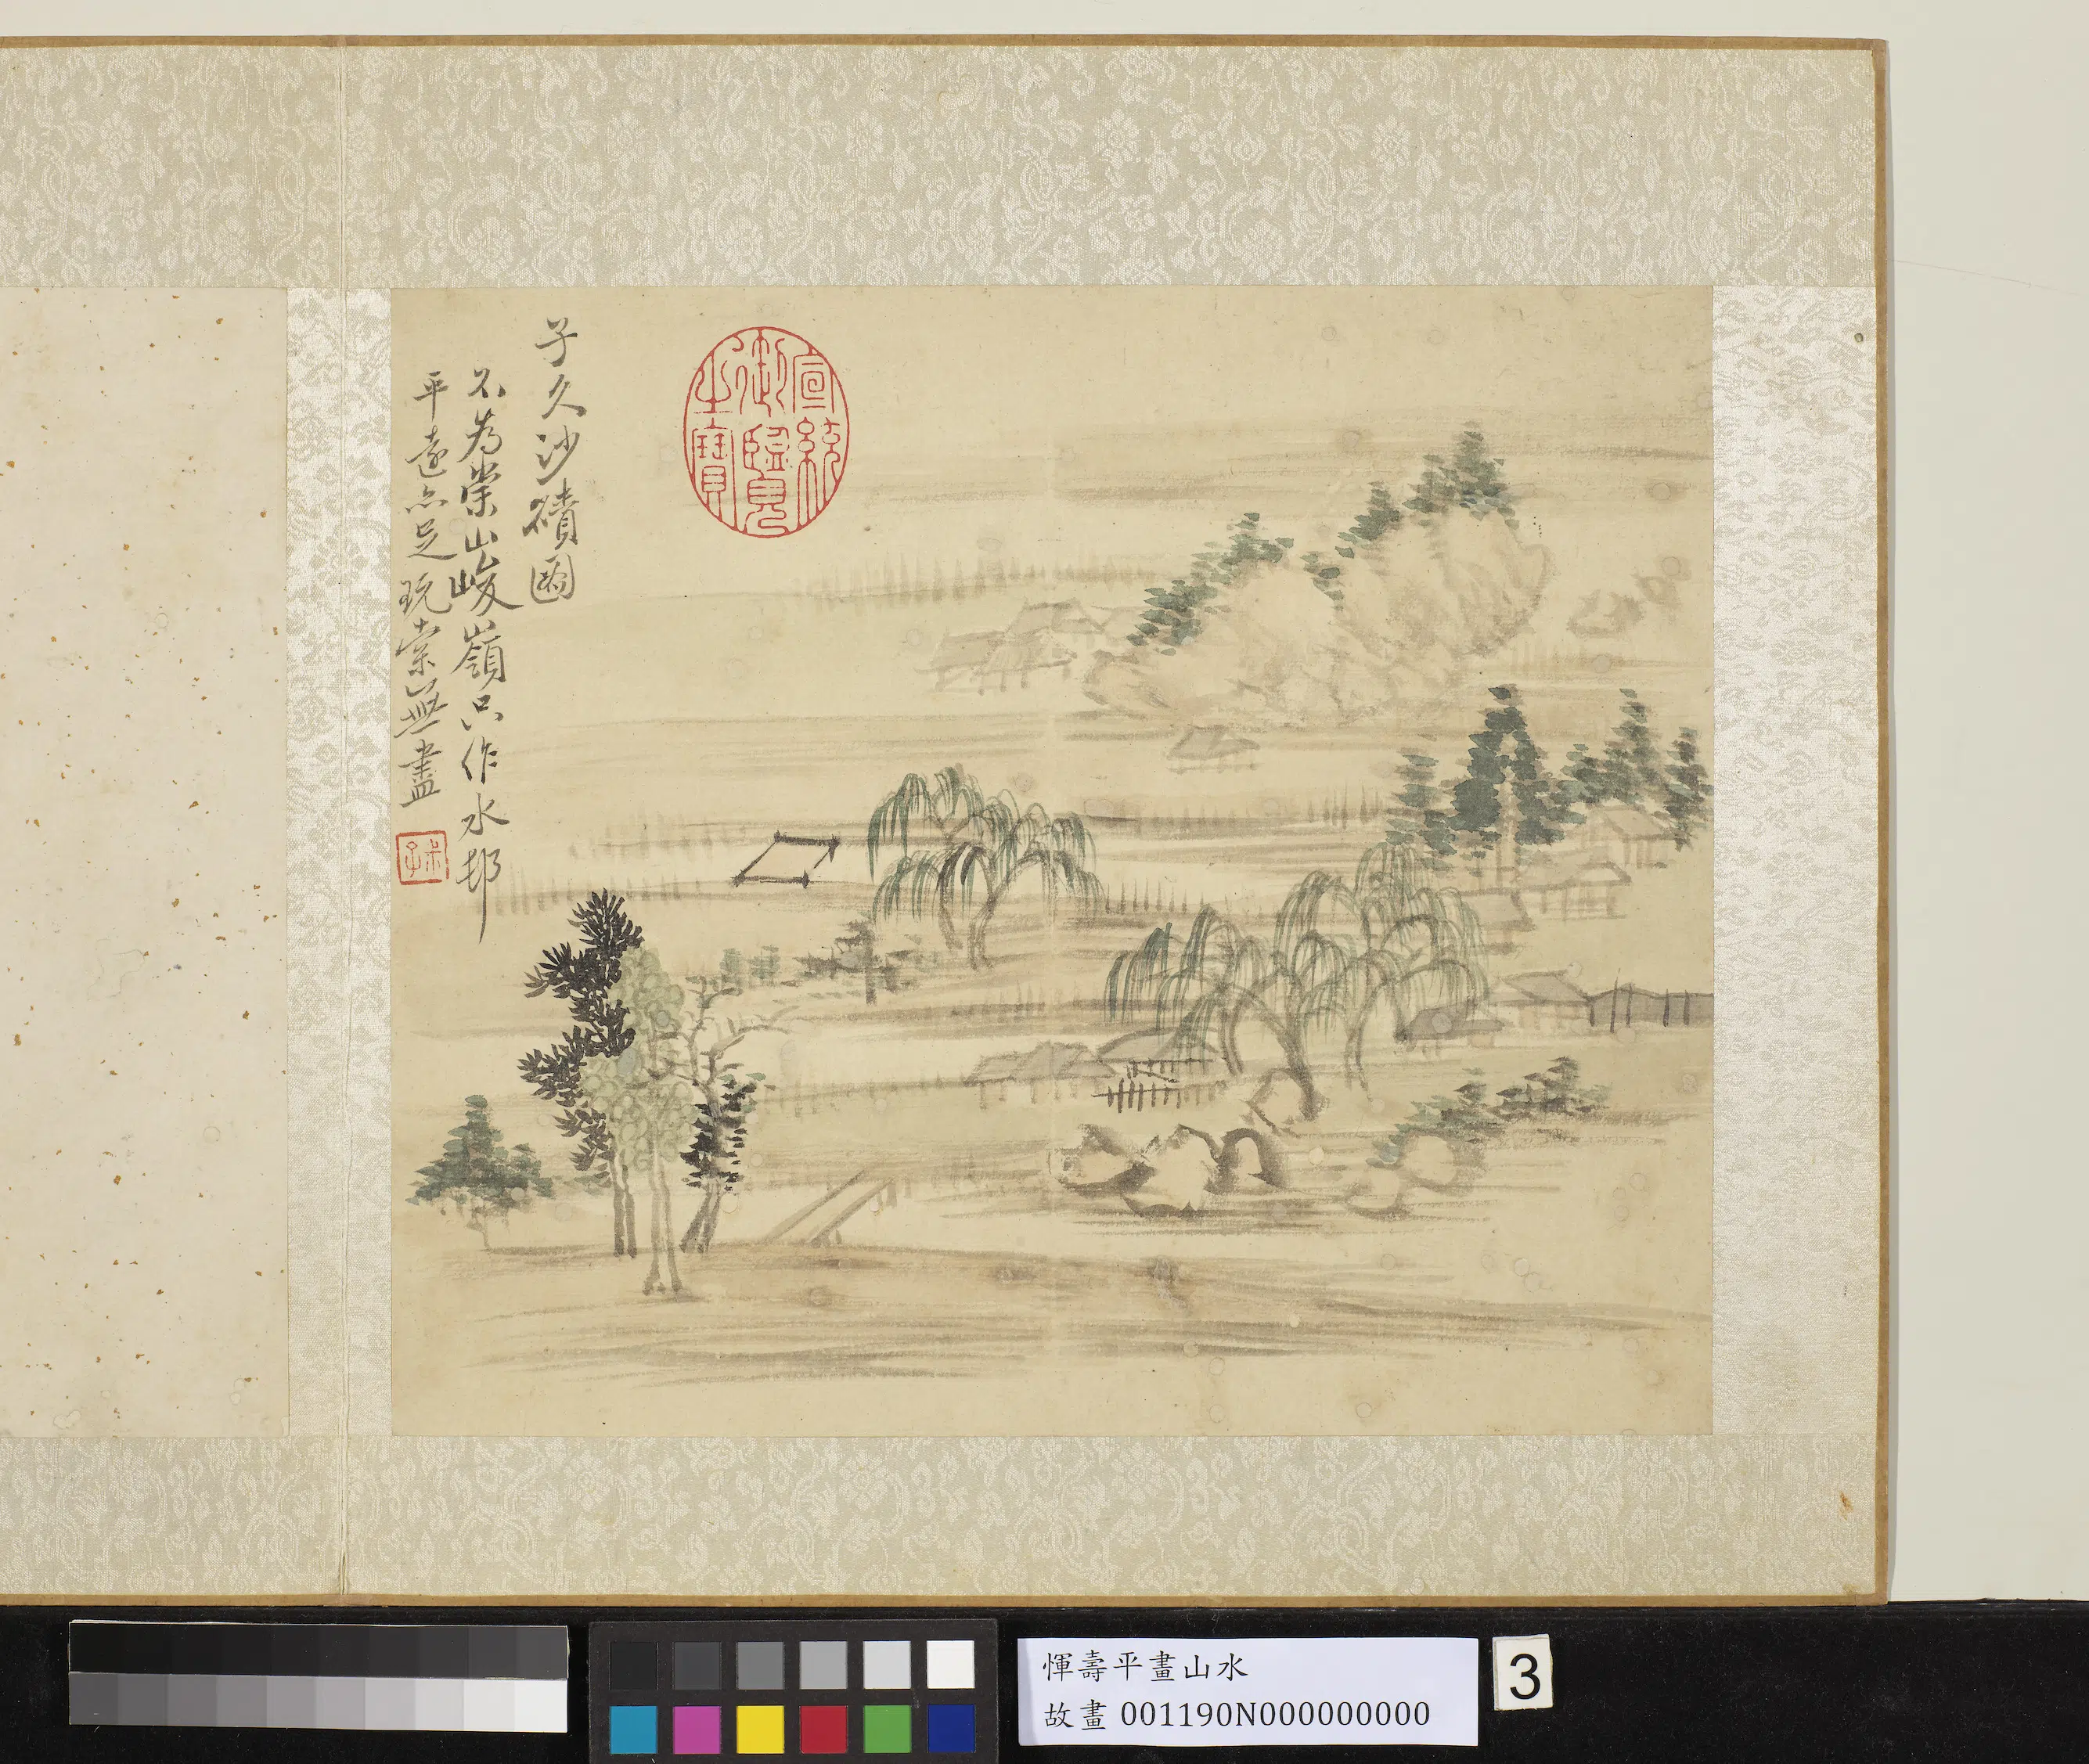 子久沙磧圖
不為崇山峻嶺只作水邨
平遠亦足玩索無盡
叔子
宣統
御覽
之寶
惲壽平畫山水
故畫 001190N000000000
3